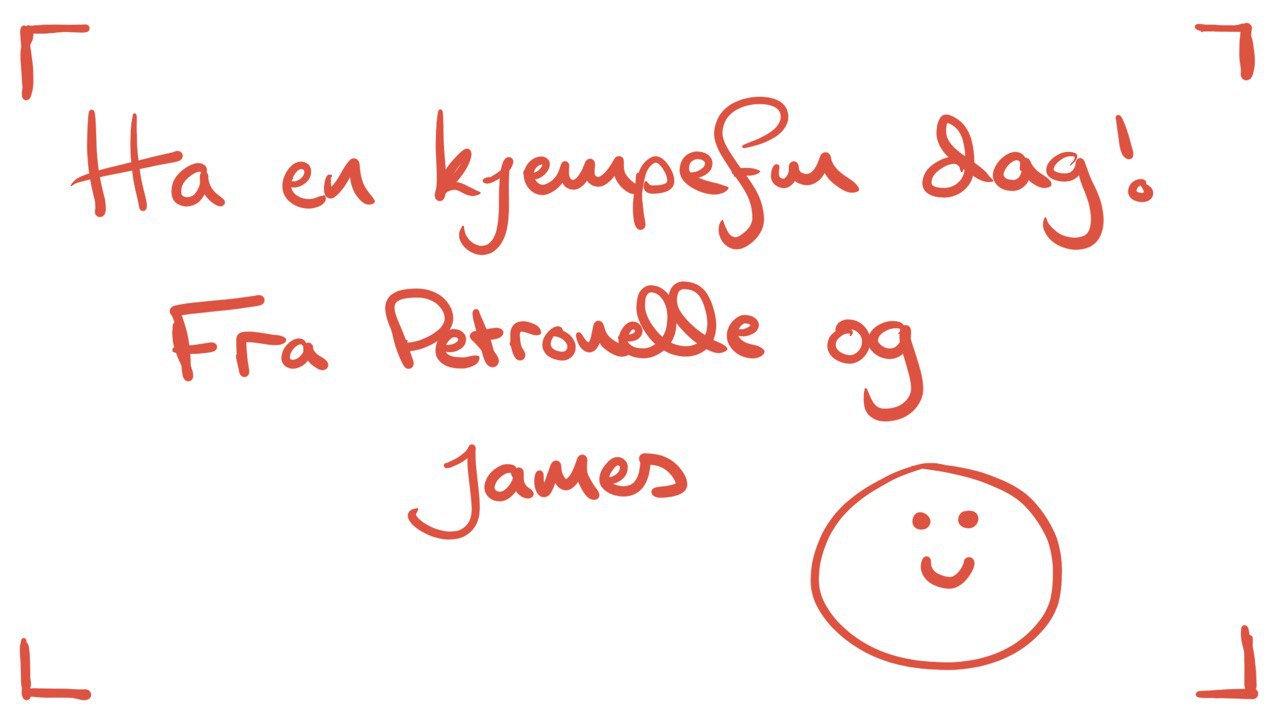 Ha en kjempefin dag!
Fra Petronelle og
James